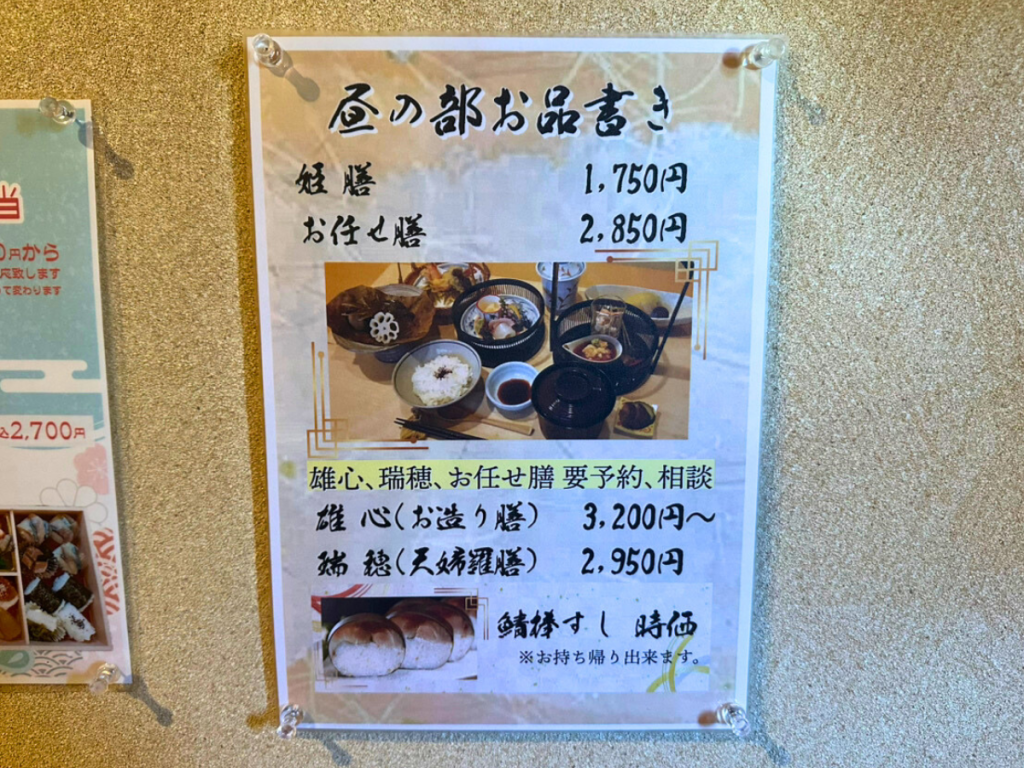 昼の部お品書き
膳 1,750円
お任せ膳 2,850円
雄心、瑞穂、お任せ膳 要予約、相談
雄心(お造り膳) 3,200円〜
瑞穂(天婦羅膳) 2,950円
鯖棒すし 時価
※お持ち帰り出来ます。
当
0円から
応致します
て変わります
込2,700円